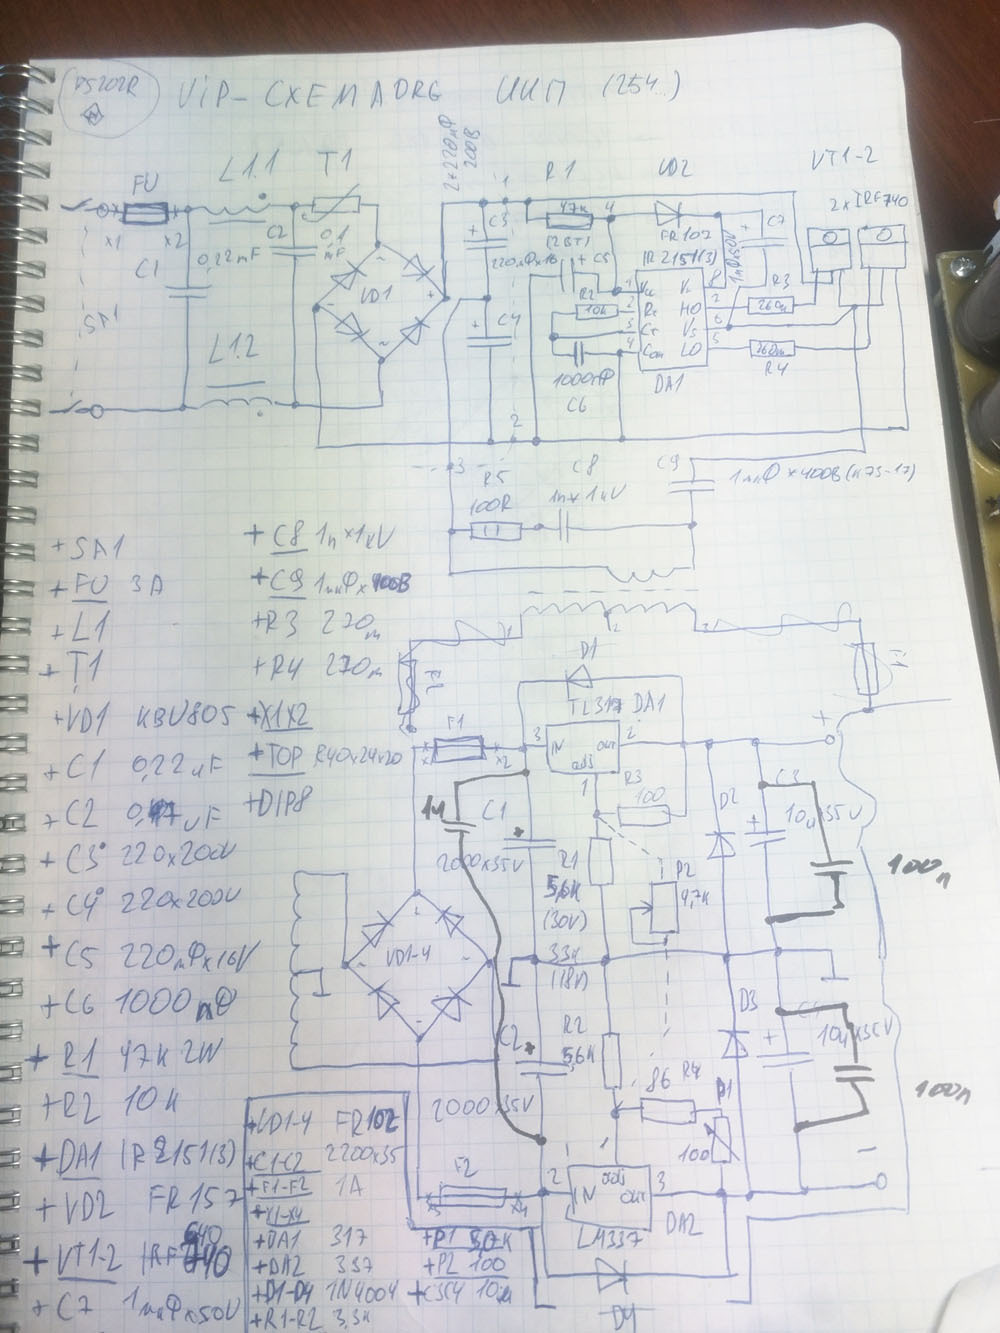 VIP-CXEMA ORG ИИП (254...)
FU
L1.1
T1
2×220мкФ
200В
R1
VD2
VT1-2
2×IRF740
x1
x2
C1
0,22mF
C2
0,1
mF
VD1
SA1
L1.2
C3
C4
47к
(2ВТ)
4
FR102
C7
1мкФх50V
220мФх16
C5
IR2151(3)
R2
10к
1000пФ
C6
DA1
R3
R4
1
2
3
4
Vcc
Rt
Ct
Com
HO
Vs
LO
8
7
6
5
2
3
R5
100R
C8
1п×1кV
C9
1мкФ×400В (к73-17)
+SA1
+FU 3A
+L1
+T1
+VD1 KBU805
+C1 0,22uF
+C2 0,47uF
+C3 220х200V
+C4 220х200V
+C5 220мФх16V
+C6 1000пФ
+R1 47к 2W
+R2 10к
+DA1 IR2151(3)
+VD2 FR157
+VT1-2 IRF740
+C7 1мкФх50V
+C8 1п×1кV
+C9 1мкФх400В
+R3 270м
+R4 270м
+X1X2
+TOP R40х24х20
+DIP8
D1
TL317 DA1
F1
x2
3
IN
out
2
adj
1
R3
100
+
1м
C1
2000×35V
R1
5,6к
(30V)
3,3к
(18V)
P2
4,7к
D2
C3
10м×35V
100п
VD1-4
C2
2000×35V
R2
5,6к
86
R4
P1
100
D3
10м×35V
100п
F2
2
IN
adj
out
3
LM337
DA2
D4
-
+VD1-4 FR102
+C1-C2 2200×35
+F1-F2 1A
+X1-X4
+DA1 317
+DA2 337
+D1-D4 1N4004
+R1-R2 3,3к
+P2 100
+C3C4 10м